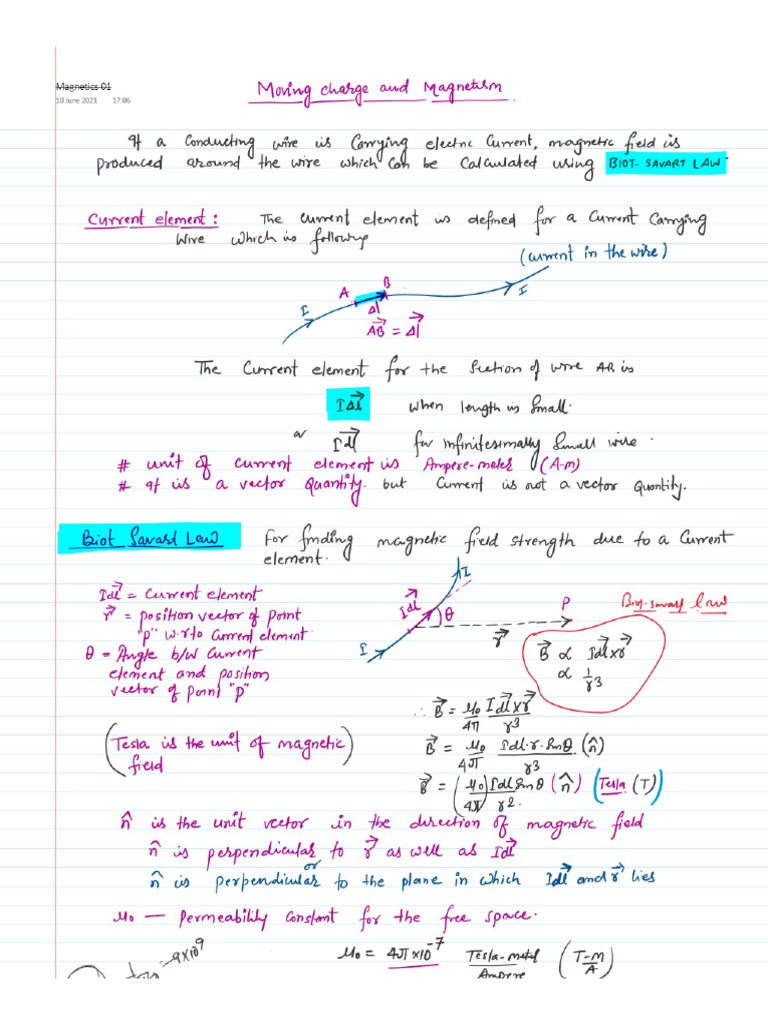 Magnetics 01
10 June 2021 17:06
Moving charge and Magnetism
If a conducting wire is carrying electric current, magnetic field is
produced around the wire which can be calculated using BIOT-SAVART LAW.
Current element: The current element is defined for a current carrying
wire which is following
(current in the wire)
A B
I Δl I
AB→ = Δl→
The current element for the section of wire AB is
IΔl→ when length is small.
or Idl→ for infinitesimally small wire.
# unit of current element is Ampere-meter (A-m)
# It is a vector quantity. but current is not a vector quantity.
Biot Savart Law For finding magnetic field strength due to a current
element.
Idl→ = Current element
r→ = position vector of point
"p" w.r.to current element.
θ = Angle b/w current
element and position
vector of point "p"
I
Idl→ θ
I r→ P
Biot-savart law
B→ ∝ Idl→×r→
∝ 1/r3
∴ B→ = μ0/4π Idl→×r→/r3
(Tesla is the unit of magnetic
field)
B→ = μ0/4π Idl.r.Sinθ/r3 (n̂)
B→ = (μ0/4π) Idl Sinθ/r2. (n̂) (Tesla (T))
n̂ is the unit vector in the direction of magnetic field
n̂ is perpendicular to r→ as well as Idl→
or
n̂ is perpendicular to the plane in which Idl→ and r→ lies
μ0 — Permeability constant for the free space.
9×10^9
μ0 = 4π×10^-7 Tesla-meter/Ampere (T-M/A)